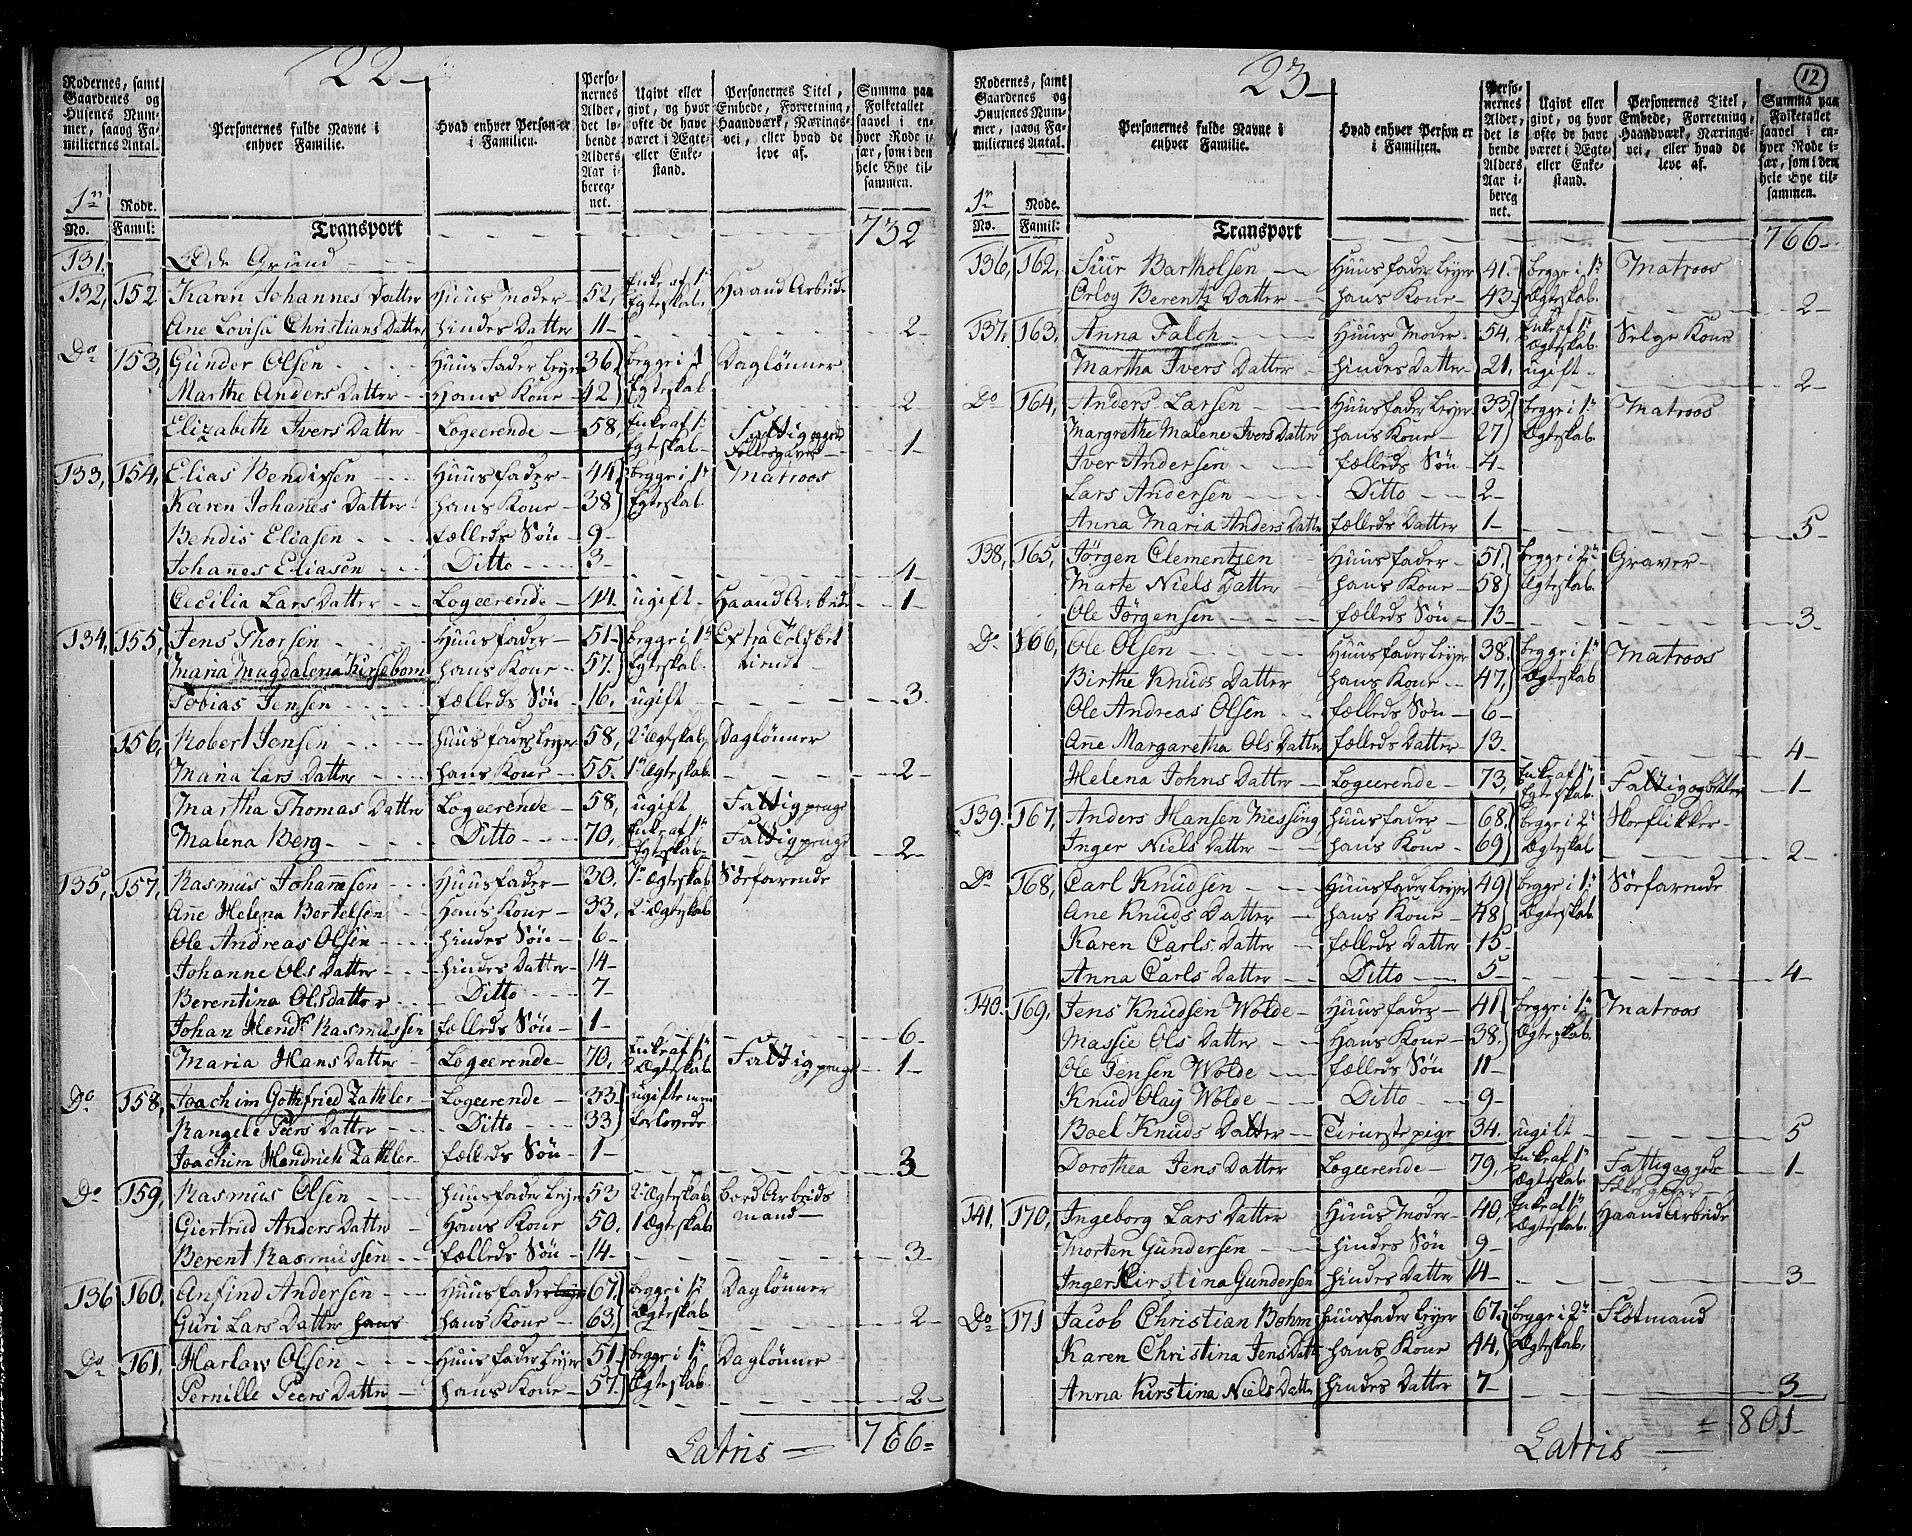 22-
Rodernes, samt Gaardenes og Husenes Nummer, saavog Familiernes Antal.
Personernes fulde Navne i enhver Familie.
Hvad enhver Person er i Familien.
Personernes Alder, det løbende Alders Aar iberegnet.
Ugivt eller givt, og hvor ofte de have været i Ægte- eller Enkestand.
Personernes Titel, Embede, Forretning, Haandværk, Næringsvei, eller hvad de leve af.
Summa paa Folketallet saavel i enhver Rode især, som i den hele Bye tilsammen.
1n Rode.
No. Famil: Transport 732
131. Øde Grund
132, 152 Karen Johannes Datter Huus Moder 52, Enke af 1n Egteskab. Haand Arbeide
Ane Lovisa Christians Datter hindes Datter 11- 2
Do 153, Gunder Olsen Huus Fader Leyer 36) begge i 1 Daglønner
Marthe Anders Datter Hans Kone 42) Egteskab 2
Elizabeth Ivers Datter Logeerende 58, Enke af 1n Egteskab. Fattig 1
133, 154, Elias Bendixsen Huusfader 44, begge i 1n Matroos
Karen Johanes Datter hans Kone 38) Egteskab
Bendis Eliasen fælleds Søn 9-
Johanes Eliasen Ditto 3- 4
Cecilia Lars Datter Logeerende 44- ugift Haand Arbeide 1
134, 155, Jens Thorsen Huusfader 51- begge i 1n Extra Toldbetiendt
Maria Magdalena Kirsebom hans Kone 57. Egteskab.
Tobias Jensen fælleds Søn 16. ugift 3
156, Robert Jensen huusfader Leyer 58, 2- Egteskab, Daglønner
Maria Lars Datter hans Kone 55. 1n Ægteskab. 2
Martha Thomas Datter Logeerende 58, ugift Fattigpenge
Malena Berg Ditto 70, Enke af 1n Egteskab Fattigpenge 2
135, 157, Rasmus Johannsen Huusfader 30. 1- Ægteskab Søefarende
Ane Helena Bertelsen Hans Kone 33. 2- Ægteskab
Ole Andreas Olsen hindes Søn 6-
Johanne Ols Datter hindes Datter 14-
Berentina Olsdatter Ditto 7-
Johan Hendk Rasmussen fælleds Søn 1- 6
Maria Hans Datter Logeerende 70, Enke af 1n Ægteskab Fattigpenge 1
Do 158, Joachim Gottfried Zathler Logeerende 33) ugifte men
Rangele Peers Datter Ditto 33) forlovede
Joachim Hendrich Zathler fælleds Søn 1- 3
Do 159, Rasmus Olsen huusfader Leyer 53 2- Ægteskab, bord Arbeids mand
Giertrud Anders Datter Hans Kone 50. 1 Ægteskab
Berent Rasmussen fælleds Søn 14- 3
136 160, Anfind Andersen Huusfader Leyer 67. begge i 1n Daglønner
Guri Lars Datter hans hans Kone 63) Ægteskab 2
Do 161, Harlow Olsen Huusfader Leyer 51- begge i 1n Daglønner
Pernille Peers Datter hans Kone 57. Ægteskab. 2
Latris 766=
23-
12
Rodernes, samt Gaardenes og Husenes Nummer, saavog Familiernes Antal.
Personernes fulde Navne i enhver Familie.
Hvad enhver Person er i Familien.
Personernes Alder, det løbende Alders Aar iberegnet.
Ugivt eller givt, og hvor ofte de have været i Ægte- eller Enkestand.
Personernes Titel, Embede, Forretning, Haandværk, Næringsvei, eller hvad de leve af.
Summa paa Folketallet saavel i enhver Rode især, som i den hele Bye tilsammen.
1n Rode.
No. Famil: Transport 766-
136, 162, Siur Bartholsen Huusfader Leyer 41. begge i 1n Matroos
Orlog Berentz Datter hans Kone 43. Ægteskab. 2
137, 163, Anna Falch Huus Moder 54, Enke af 1n Ægteskab. Selge Kone
Martha Ivers Datter hindes Datter 21, ugift 2
Do 164, Anders Larsen Huusfader Leyer 33) begge i 1n Matroos
Margrethe Malene Ivers Datter hans Kone 27) Ægteskab
Iver Andersen fælleds Søn 4-
Lars Andersen Ditto 2-
Anna Maria Anders Datter fælleds Datter 1- 5
138, 165, Jørgen Clementzen Huusfader 51, begge i 2n Graver
Marte Niels Datter hans Kone 58) Ægteskab
Ole Jørgensen fælleds Søn 13- 3
Do 166, Ole Olsen Huusfader Leyer 38. begge i 1n Matroos
Birthe Knuds Datter hans Kone 47, Ægteskab
Ole Andreas Olsen fælleds Søn 6-
Ane Margaretha Ols Datter fælleds Datter 13- 4
Helena Johns Datter Logeerende 73, Enke af 1n Egteskab. Fattig 1
139. 167, Anders Hansen Messing huusfader 68. begge i 2n Skoeflikker
Inger Niels Datter hans Kone 69) Ægteskab 2
Do 168, Carl Knudsen Huusfader Leyer 49) begge i 1n Søefarende
Ane Knuds Datter hans Kone 48) Ægteskab
Karen Carls Datter fælleds Datter 15-
Anna Carls Datter Ditto 5- 4
140. 169, Jens Knudsen Wolde Huusfader 41 begge i 1n Matroos
Massie Ols Datter Hans Kone 38. Ægteskab.
Ole Jensen Wolde fælleds Søn 11-
Knud Olay Wolde Ditto 9-
Boel Knuds Datter Tienestepige 34. ugift 5
Dorothea Jens Datter Logeerende 79, Enke af 1n Ægteskab Fattig 1
141, 170, Ingeborg Lars Datter Huus Moder 40, Enke af 1n Ægteskab. Haand Arbeide
Morten Gundersen hindes Søn 9-
Inger Kirstina Gundersen hindes Datter 14- 3
Do 171 Jacob Christian Bohm huusfader Leyer 67. begge i 2n Flotmand
Karen Christina Jens Datt hans Kone 44, Ægteskab,
Anna Kirstina Niels Datt hindes Datter 7- 3
Latris = 801-